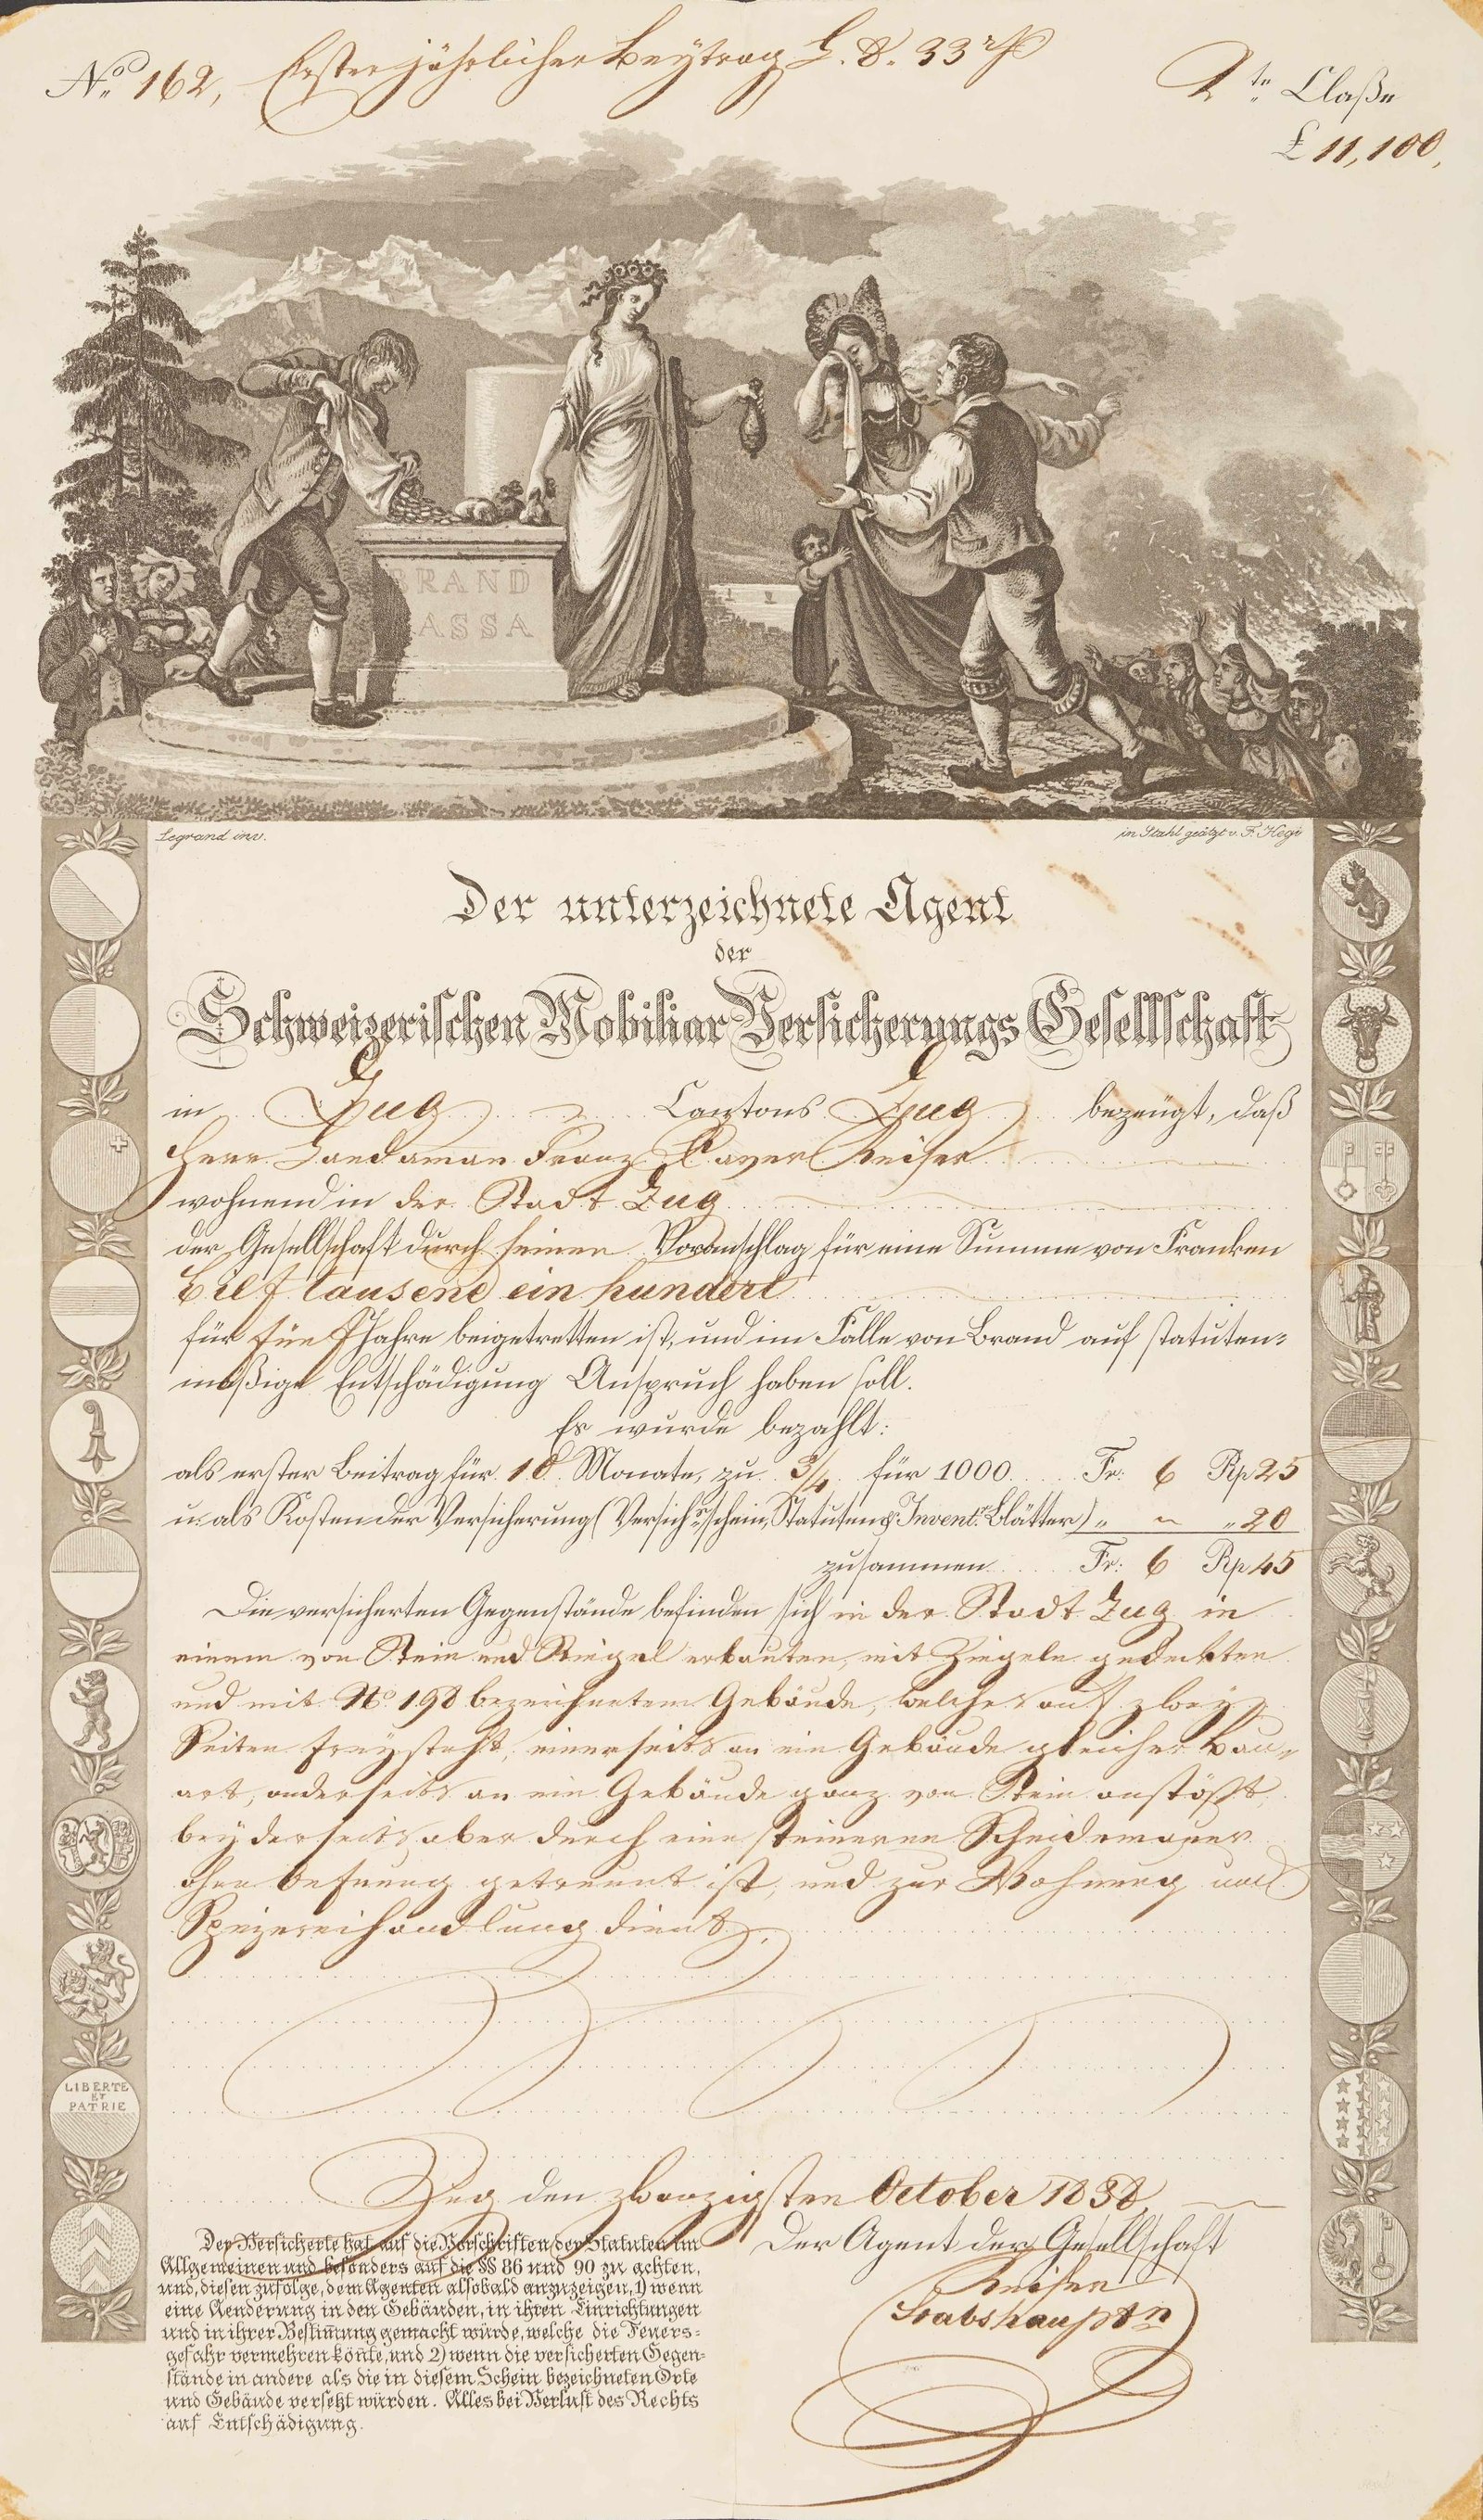 No. 162, Erster jährlicher Beytrag L. 8. 33 rp
2te Claße
£ 11,100,
BRAND
ASSA
Legrand inv.
in Stahl geätzt v. F. Hegi
Der unterzeichnete Agent
der
Schweizerischen Mobiliar Versicherungs Gesellschaft
in Zug Cantons Zug bezeugt, daß
Herr Landaman Franz Xaver Keiser
wohnend in der Stadt Zug
der Gesellschaft durch seinen Voranschlag für eine Summe von Franken
Eilf tausend ein hundert
für fünf Jahre beigetretten ist, und im Falle von Brand auf statuten=
mäßige Entschädigung Anspruch haben soll.
Es wurde bezahlt:
als erster Beitrag für 10 Monate, zu 3/4 für 1000 Fr: 6 Rp 25
u. als Kosten der Versicherung (Versichrgsschein, Statuten & Invent. Blätter) " ~ " 20
zusammen Fr: 6 Rp 45
Die versicherten Gegenstände befinden sich in der Stadt Zug in
einem von Stein und Riegel erbauten, mit Ziegeln gedeckten
und mit No 198 bezeichnetem Gebäude, welches auf zwey
Seiten freysteht, einerseits an ein Gebäude gleicher Bau=
art, anderseits an ein Gebäude ganz von Stein anstößt,
beyderseits aber durch eine steinerne Scheidemauer
ohne Oefnung getrennt ist, und zur Wohnung und
Spezereihandlung dient.
LIBERTE
ET
PATRIE
Zug den zwanzigsten October 1838
Der Agent der Gesellschaft
Keiser
Stabshauptm
Der Versicherte hat auf die Vorschriften der Statuten im
Allgemeinen und besonders auf die §§ 86 und 90 zu achten,
und, diesen zufolge, dem Agenten alsobald anzuzeigen, 1) wenn
eine Aenderung in den Gebäuden, in ihren Einrichtungen
und in ihrer Bestim̄ung gemacht würde, welche die Feuers=
gefahr vermehren kön̄te, und 2) wenn die versicherten Gegen=
stände in andere als die in diesem Schein bezeichneten Orte
und Gebäude versetzt würden. Alles bei Verlust des Rechts
auf Entschädigung.